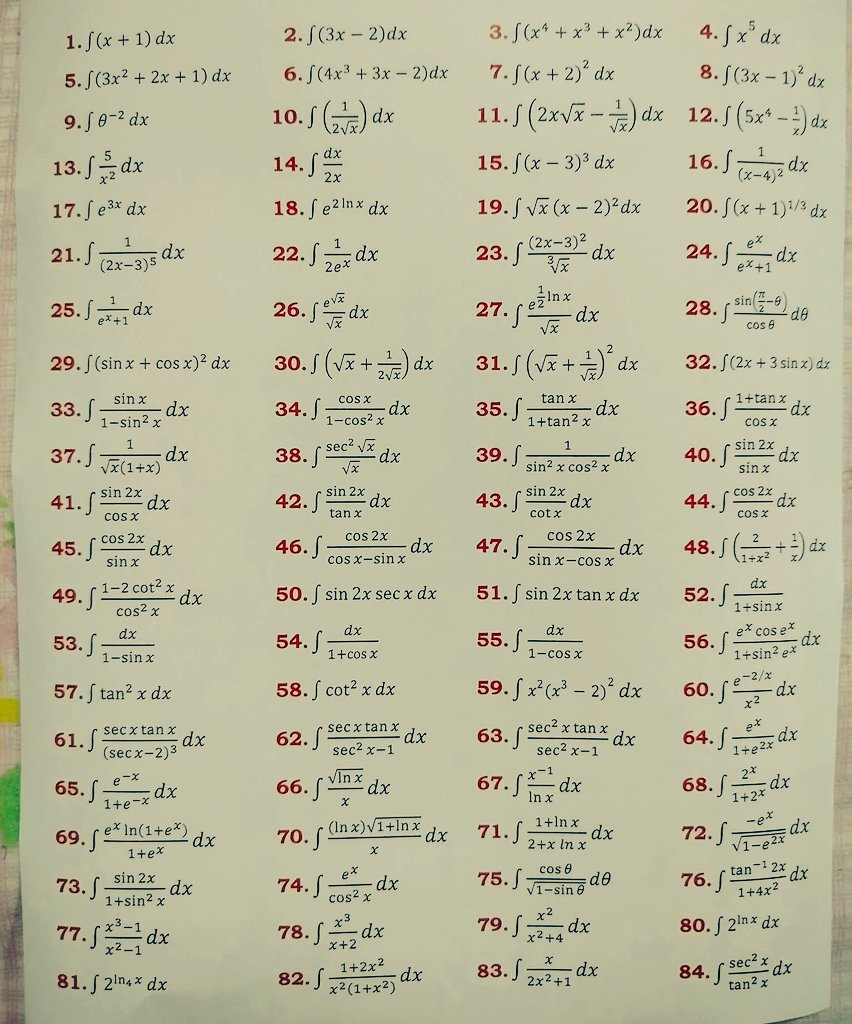 1. ∫(x + 1) dx 2. ∫(3x − 2)dx 3. ∫(x⁴ + x³ + x²)dx 4. ∫ x⁵ dx
5. ∫(3x² + 2x + 1) dx 6. ∫(4x³ + 3x − 2)dx 7. ∫(x + 2)² dx 8. ∫(3x − 1)² dx
9. ∫ θ⁻² dx 10. ∫ (1/(2√x)) dx 11. ∫ (2x√x − 1/√x) dx 12. ∫ (5x⁴ − 1/x) dx
13. ∫ 5/x² dx 14. ∫ dx/2x 15. ∫(x − 3)³ dx 16. ∫ 1/(x−4)² dx
17. ∫ e^(3x) dx 18. ∫ e^(2 ln x) dx 19. ∫ √x (x − 2)² dx 20. ∫(x + 1)^(1/3) dx
21. ∫ 1/(2x−3)⁵ dx 22. ∫ 1/(2e^x) dx 23. ∫ (2x−3)²/∛x dx 24. ∫ e^x/(e^x+1) dx
25. ∫ 1/(e^x+1) dx 26. ∫ e^(√x)/√x dx 27. ∫ e^(1/2 ln x)/√x dx 28. ∫ sin(π/2−θ)/cos θ dθ
29. ∫(sin x + cos x)² dx 30. ∫ (√x + 1/(2√x)) dx 31. ∫ (√x + 1/√x)² dx 32. ∫(2x + 3 sin x) dx
33. ∫ sin x/(1−sin² x) dx 34. ∫ cos x/(1−cos² x) dx 35. ∫ tan x/(1+tan² x) dx 36. ∫ (1+tan x)/cos x dx
37. ∫ 1/(√x(1+x)) dx 38. ∫ sec² √x/√x dx 39. ∫ 1/(sin² x cos² x) dx 40. ∫ sin 2x/sin x dx
41. ∫ sin 2x/cos x dx 42. ∫ sin 2x/tan x dx 43. ∫ sin 2x/cot x dx 44. ∫ cos 2x/cos x dx
45. ∫ cos 2x/sin x dx 46. ∫ cos 2x/(cos x−sin x) dx 47. ∫ cos 2x/(sin x−cos x) dx 48. ∫ (2/(1+x²) + 1/x) dx
49. ∫ (1−2 cot² x)/cos² x dx 50. ∫ sin 2x sec x dx 51. ∫ sin 2x tan x dx 52. ∫ dx/(1+sin x)
53. ∫ dx/(1−sin x) 54. ∫ dx/(1+cos x) 55. ∫ dx/(1−cos x) 56. ∫ e^x cos e^x/(1+sin² e^x) dx
57. ∫ tan² x dx 58. ∫ cot² x dx 59. ∫ x²(x³ − 2)² dx 60. ∫ e^(−2/x)/x² dx
61. ∫ sec x tan x/(sec x−2)³ dx 62. ∫ sec x tan x/(sec² x−1) dx 63. ∫ sec² x tan x/(sec² x−1) dx 64. ∫ e^x/(1+e^(2x)) dx
65. ∫ e^(−x)/(1+e^(−x)) dx 66. ∫ √(ln x)/x dx 67. ∫ x⁻¹/ln x dx 68. ∫ 2^x/(1+2^x) dx
69. ∫ e^x ln(1+e^x)/(1+e^x) dx 70. ∫ (ln x)√(1+ln x)/x dx 71. ∫ (1+ln x)/(2+x ln x) dx 72. ∫ −e^x/√(1−e^(2x)) dx
73. ∫ sin 2x/(1+sin² x) dx 74. ∫ e^x/cos² x dx 75. ∫ cos θ/√(1−sin θ) dθ 76. ∫ tan⁻¹ 2x/(1+4x²) dx
77. ∫ (x³−1)/(x²−1) dx 78. ∫ x³/(x+2) dx 79. ∫ x²/(x²+4) dx 80. ∫ 2^(ln x) dx
81. ∫ 2^(ln₄ x) dx 82. ∫ (1+2x²)/(x²(1+x²)) dx 83. ∫ x/(2x²+1) dx 84. ∫ sec² x/tan² x dx